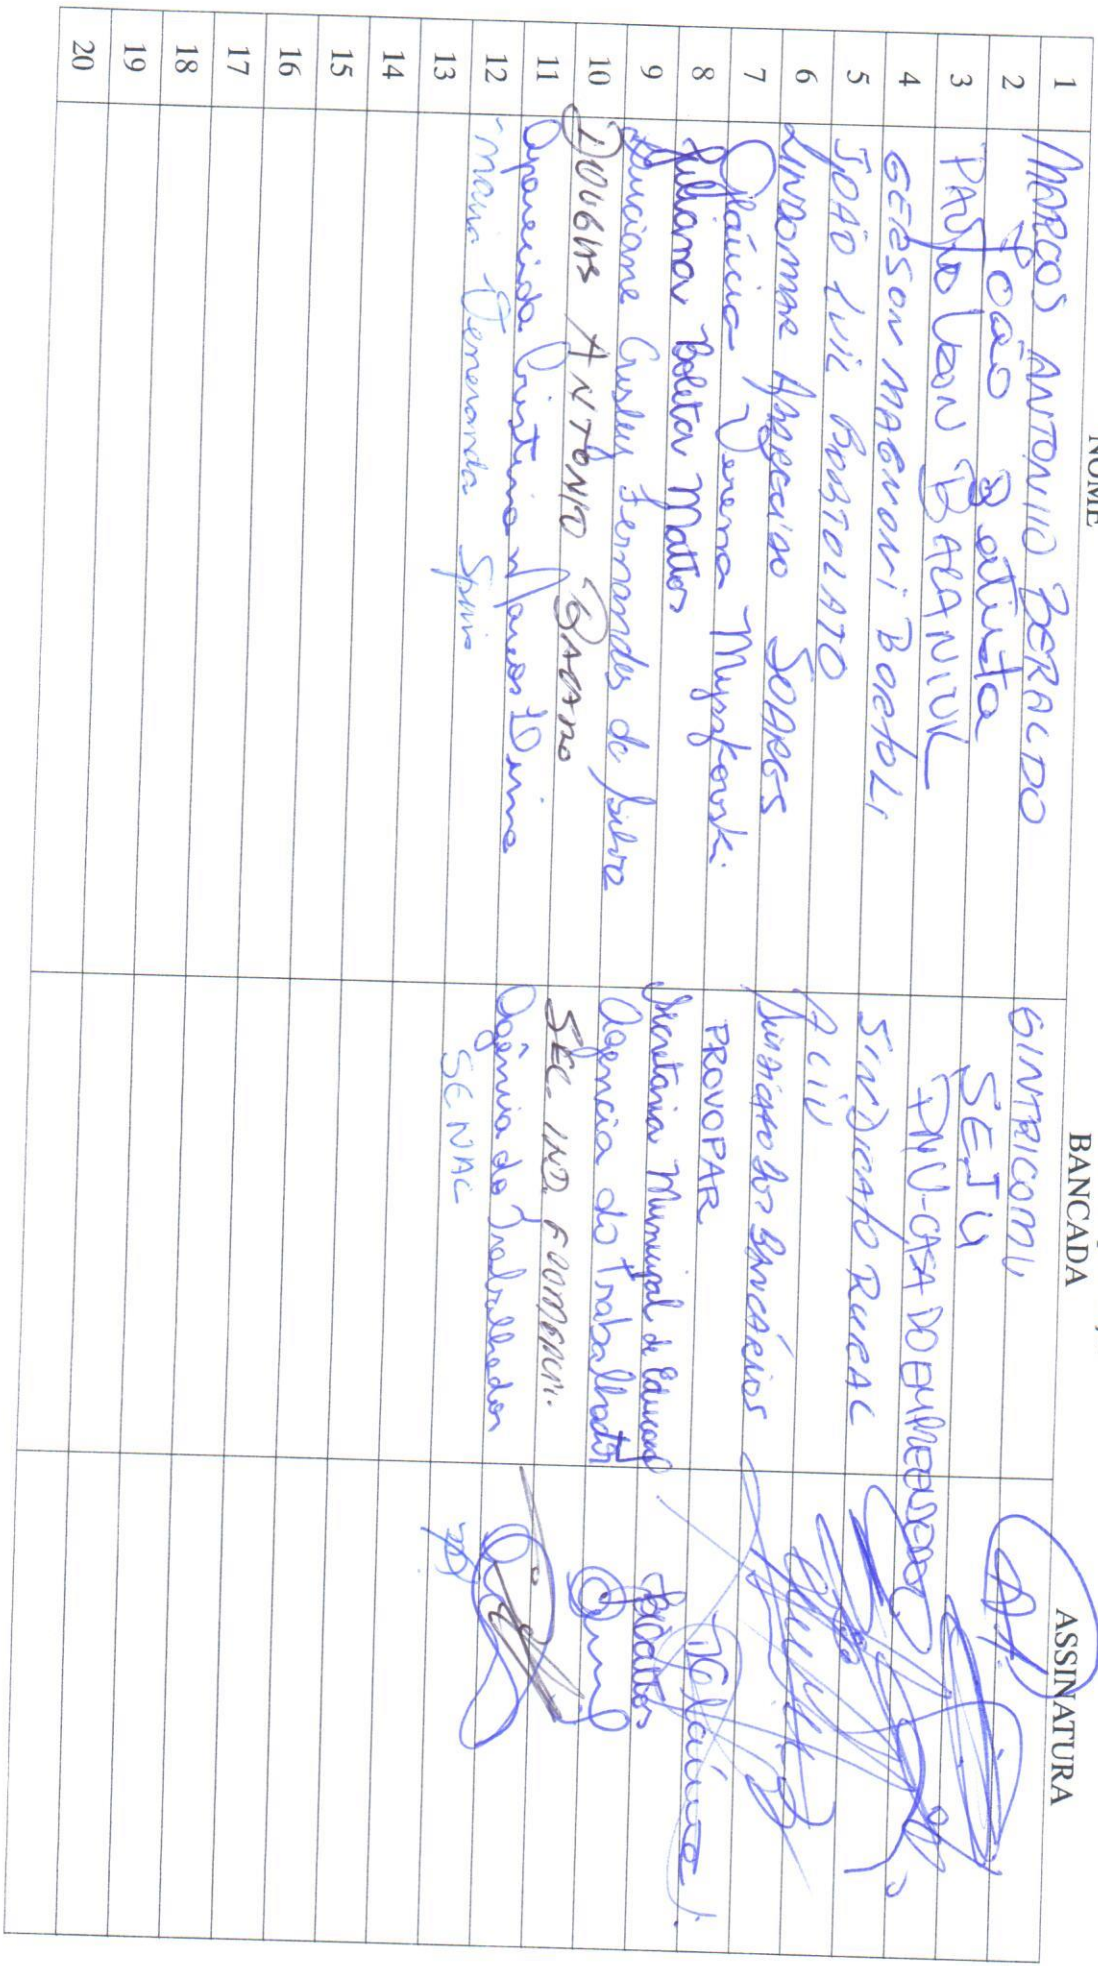 NOME BANCADA ASSINATURA
1 MARCOS ANTONIO BERALDO SINTRICOMU
2 João Batista SEJU
3 PAULO LEON BARANIUK PNU-CASA DO EMPREENDEDOR
4 GERSON MAGNONI BORTOLI SINDICATO RURAL
5 JOÃO LUIZ BORTOLATO ACIU
6 LINDOMAR APARECIDO SOARES SINDICATO DOS BANCÁRIOS
7 Gláucia Verena Myszkovski PROVOPAR Gláucia
8 Juliana Boleta Mattos Secretaria Municipal de Educação JBMattos
9 Luciane Crisley Fernandes da Silva Agencia do Trabalhador
10 DOUGLAS ANTONIO SEC. IND. E COMERCI.
11 Aparecida Cristina Agência do Trabalhador
12 Maria Veneranda SENAC
13
14
15
16
17
18
19
20